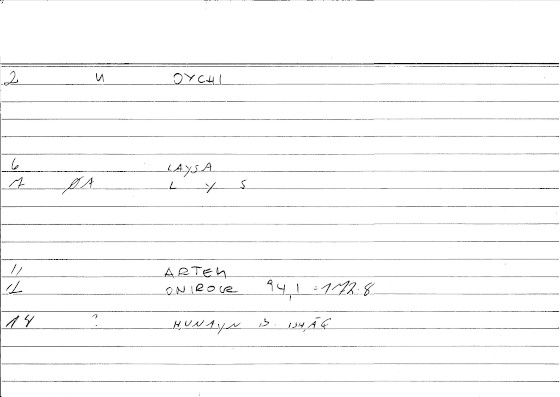 2 u OYCHI
6 LAYSA
7 ØA L Y S
11 ARTEM
12 ONIROCR 94,1 - 172.8
14 ? HUNAYN B. ISHĀG